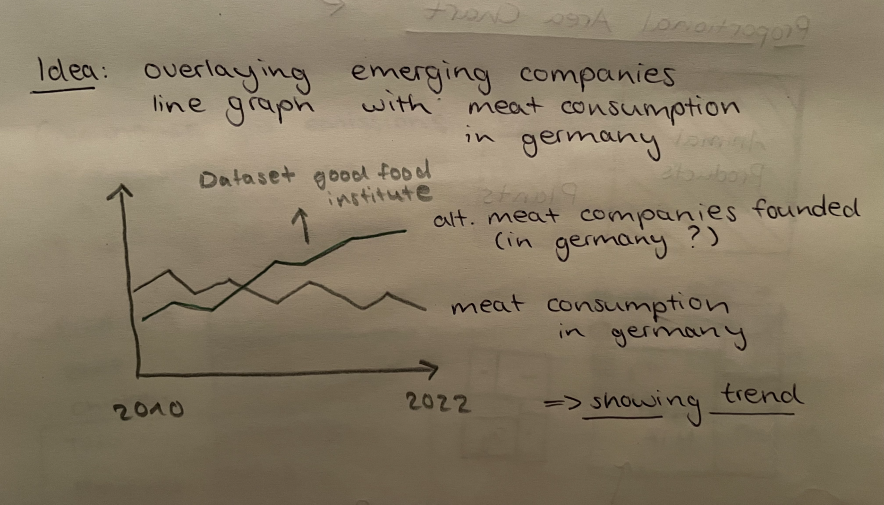 Proportional Area Chart
Idea: overlaying emerging companies
line graph with meat consumption
in germany
Animal
Products
Plants
Dataset good food
institute
alt. meat companies founded
(in germany ?)
meat consumption
in germany
2010
2022
=> showing trend